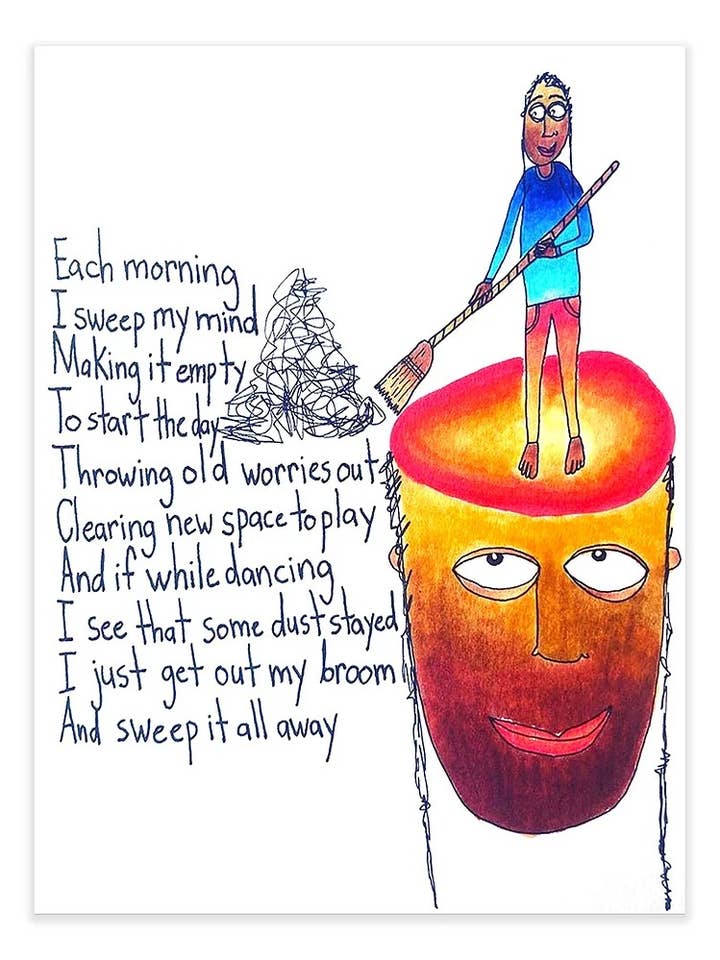 Each morning
I sweep my mind
Making it empty
To start the day
Throwing old worries out
Clearing new space to play
And if while dancing
I see that some dust stayed
I just get out my broom
And sweep it all away